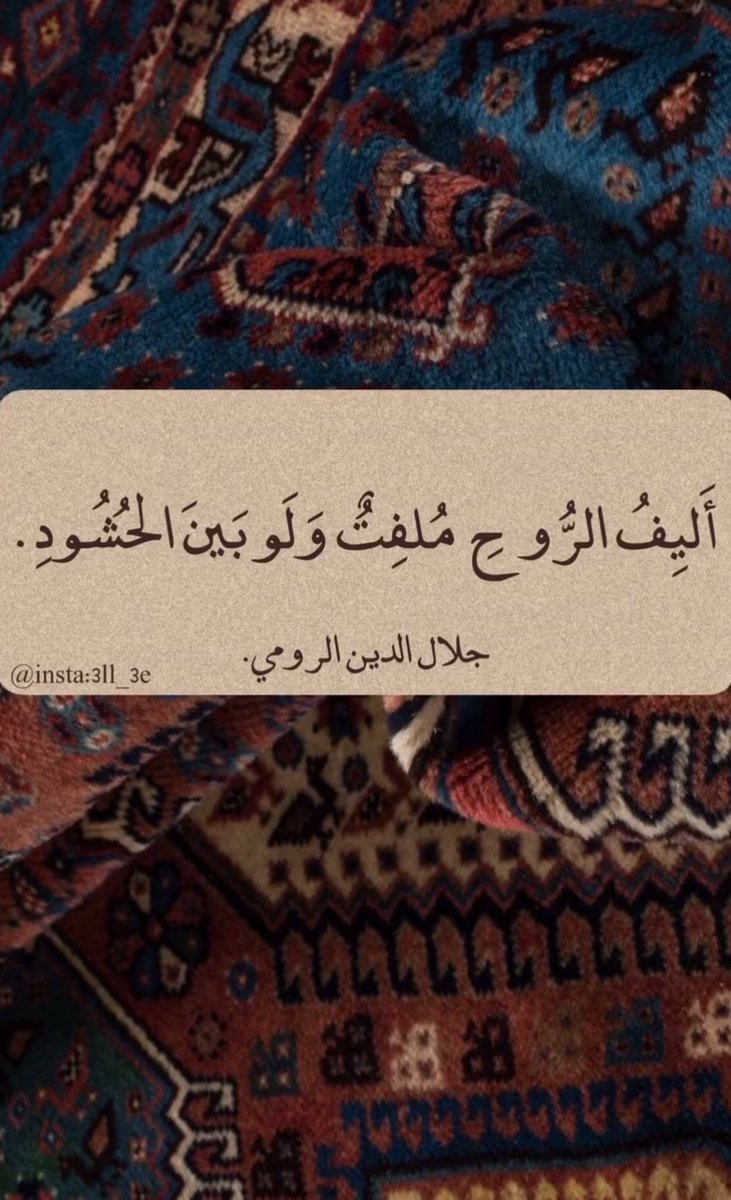 أَلِيفُ الرُّوحِ مُلفِتٌ وَلَو بَينَ الحُشُودِ.
جلال الدين الرومي.
@insta:3ll_3e